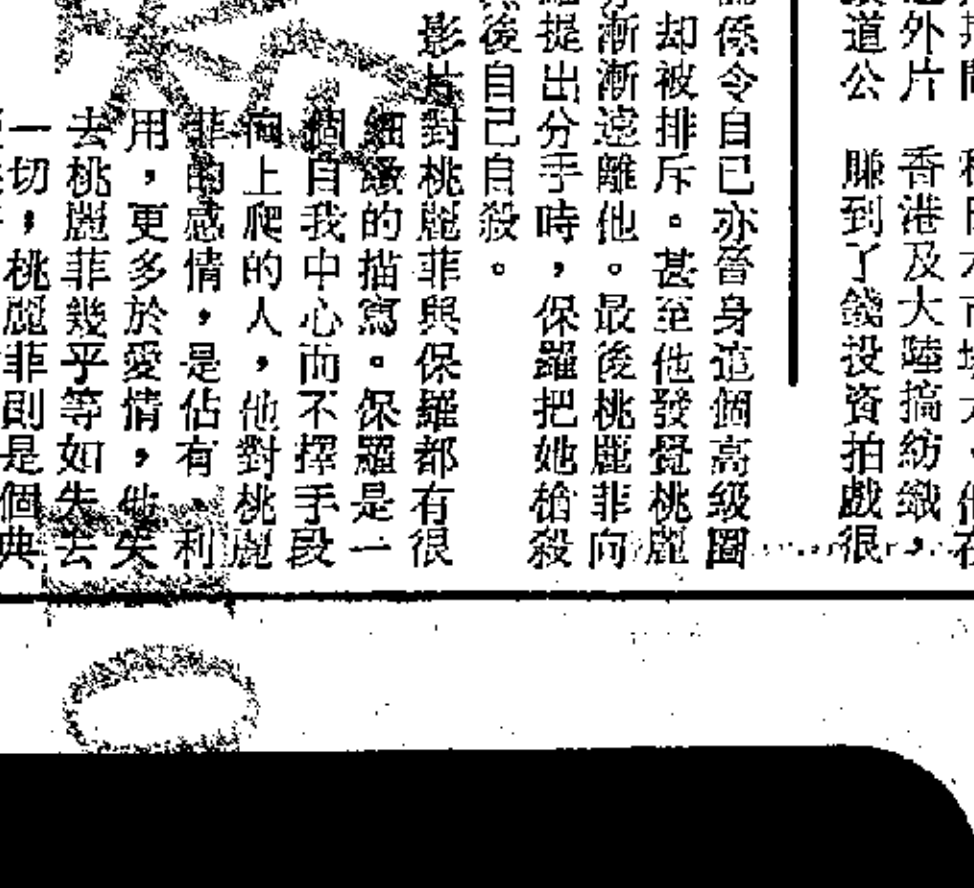 在
香港及大陸搞紡織，
外片
賺到了錢投資拍戲很
道公
係令自已亦晉身這個高級圈
却被排斥。甚至他發覺桃麗
漸漸遠離他。最後桃麗菲向
提出分手時，保羅把她槍殺
後自己自殺。
影片對桃麗菲與保羅都有很
細緻的描寫。保羅是一
個自我中心而不擇手段
向上爬的人，他對桃麗
菲的感情，是佔有，利
用，更多於愛情，他失
去桃麗菲幾乎等如失去
一切，桃麗菲則是個典